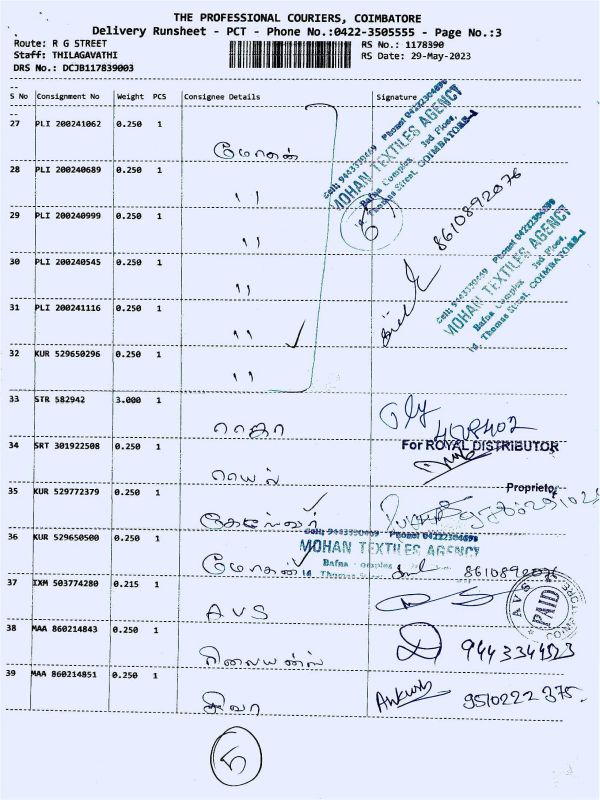 THE PROFESSIONAL COURIERS, COIMBATORE
Delivery Runsheet - PCT - Phone No.:0422-3505555 - Page No.:3
Route: R G STREET RS No.: 1178390
Staff: THILAGAVATHI RS Date: 29-May-2023
DRS No.: DCJB117839003
S No Consignment No Weight PCS Consignee Details Signature
27 PLI 200241062 0.250 1 மோகன்
28 PLI 200240689 0.250 1 ״
29 PLI 200240999 0.250 1 ״
30 PLI 200240545 0.250 1 ״
31 PLI 200241116 0.250 1 ״
32 KUR 529650296 0.250 1 ״
Cell: 9443330469 Phone: 04222304696
MOHAN TEXTILES AGENCY
Bafna Complex 3rd Floor,
14, Thomas Street, COIMBATORE-1
6
8610892076
Cell: 9443330469 Phone: 04222304696
MOHAN TEXTILES AGENCY
Bafna Complex 3rd Floor,
14, Thomas Street, COIMBATORE-1
33 STR 582942 3.000 1 ராஜா
34 SRT 301922508 0.250 1 ராயல் For ROYAL DISTRIBUTOR
Proprietor
35 KUR 529772379 0.250 1
36 KUR 529650500 0.250 1 மோகன் 8610892076
Cell: 9443330469 Phone: 04222304696
MOHAN TEXTILES AGENCY
Bafna Complex
14, Thomas
37 IXM 503774280 0.215 1 AVS
AVS PAID
38 MAA 860214843 0.250 1 ரிலையன்ஸ்
39 MAA 860214851 0.250 1 சிவா Ankush 9510222375
5